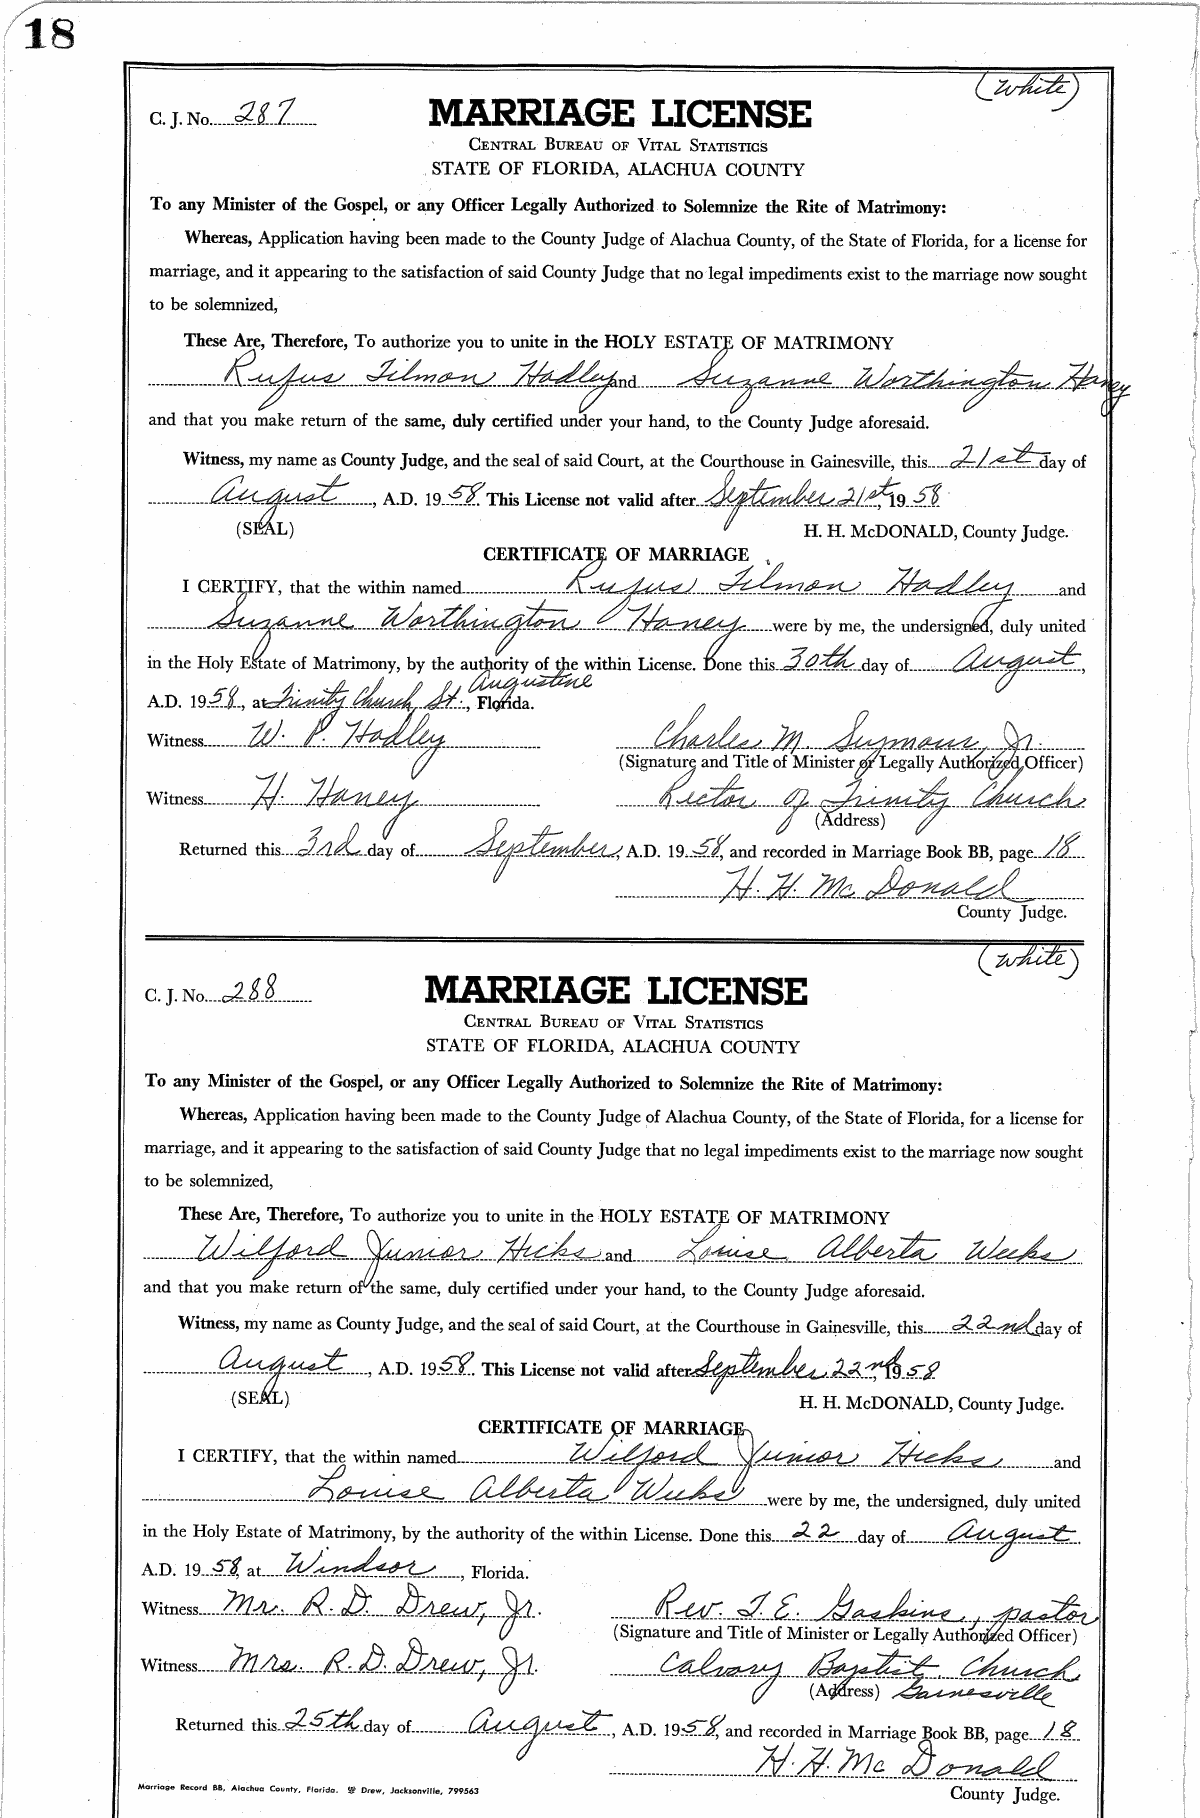 18
(White)
C. J. No. 287 MARRIAGE LICENSE
CENTRAL BUREAU OF VITAL STATISTICS
STATE OF FLORIDA, ALACHUA COUNTY
To any Minister of the Gospel, or any Officer Legally Authorized to Solemnize the Rite of Matrimony:
Whereas, Application having been made to the County Judge of Alachua County, of the State of Florida, for a license for
marriage, and it appearing to the satisfaction of said County Judge that no legal impediments exist to the marriage now sought
to be solemnized,
These Are, Therefore, To authorize you to unite in the HOLY ESTATE OF MATRIMONY
Rufus Tilmon Hadley and Suzanne Worthington Haney
and that you make return of the same, duly certified under your hand, to the County Judge aforesaid.
Witness, my name as County Judge, and the seal of said Court, at the Courthouse in Gainesville, this 21st day of
August, A.D. 1958. This License not valid after September 21st, 1958
(SEAL) H. H. McDONALD, County Judge.
CERTIFICATE OF MARRIAGE
I CERTIFY, that the within named Rufus Tilmon Hadley and
Suzanne Worthington Haney were by me, the undersigned, duly united
in the Holy Estate of Matrimony, by the authority of the within License. Done this 30th day of August,
A.D. 1958, at Trinity Church, St. Augustine, Florida.
Witness W. P. Hadley Charles M. Seymour, Jr.
(Signature and Title of Minister or Legally Authorized Officer)
Witness H. Haney Rector of Trinity Church
(Address)
Returned this 3rd day of September, A.D. 1958, and recorded in Marriage Book BB, page 18
H. H. McDonald
County Judge.
(White)
C. J. No. 288 MARRIAGE LICENSE
CENTRAL BUREAU OF VITAL STATISTICS
STATE OF FLORIDA, ALACHUA COUNTY
To any Minister of the Gospel, or any Officer Legally Authorized to Solemnize the Rite of Matrimony:
Whereas, Application having been made to the County Judge of Alachua County, of the State of Florida, for a license for
marriage, and it appearing to the satisfaction of said County Judge that no legal impediments exist to the marriage now sought
to be solemnized,
These Are, Therefore, To authorize you to unite in the HOLY ESTATE OF MATRIMONY
Wilford Junior Hicks and Louise Alberta Weeks
and that you make return of the same, duly certified under your hand, to the County Judge aforesaid.
Witness, my name as County Judge, and the seal of said Court, at the Courthouse in Gainesville, this 22nd day of
August, A.D. 1958. This License not valid after September 22nd, 1958
(SEAL) H. H. McDONALD, County Judge.
CERTIFICATE OF MARRIAGE
I CERTIFY, that the within named Wilford Junior Hicks and
Louise Alberta Weeks were by me, the undersigned, duly united
in the Holy Estate of Matrimony, by the authority of the within License. Done this 22 day of August
A.D. 1958, at Windsor, Florida.
Witness Mr. R. D. Drew, Jr. Rev. T. E. Gaskins, pastor
(Signature and Title of Minister or Legally Authorized Officer)
Witness Mrs. R. D. Drew, Jr. Calvary Baptist Church
(Address) Gainesville
Returned this 25th day of August, A.D. 1958, and recorded in Marriage Book BB, page 18
H. H. McDonald
Marriage Record BB, Alachua County, Florida. Drew, Jacksonville, 799563
County Judge.